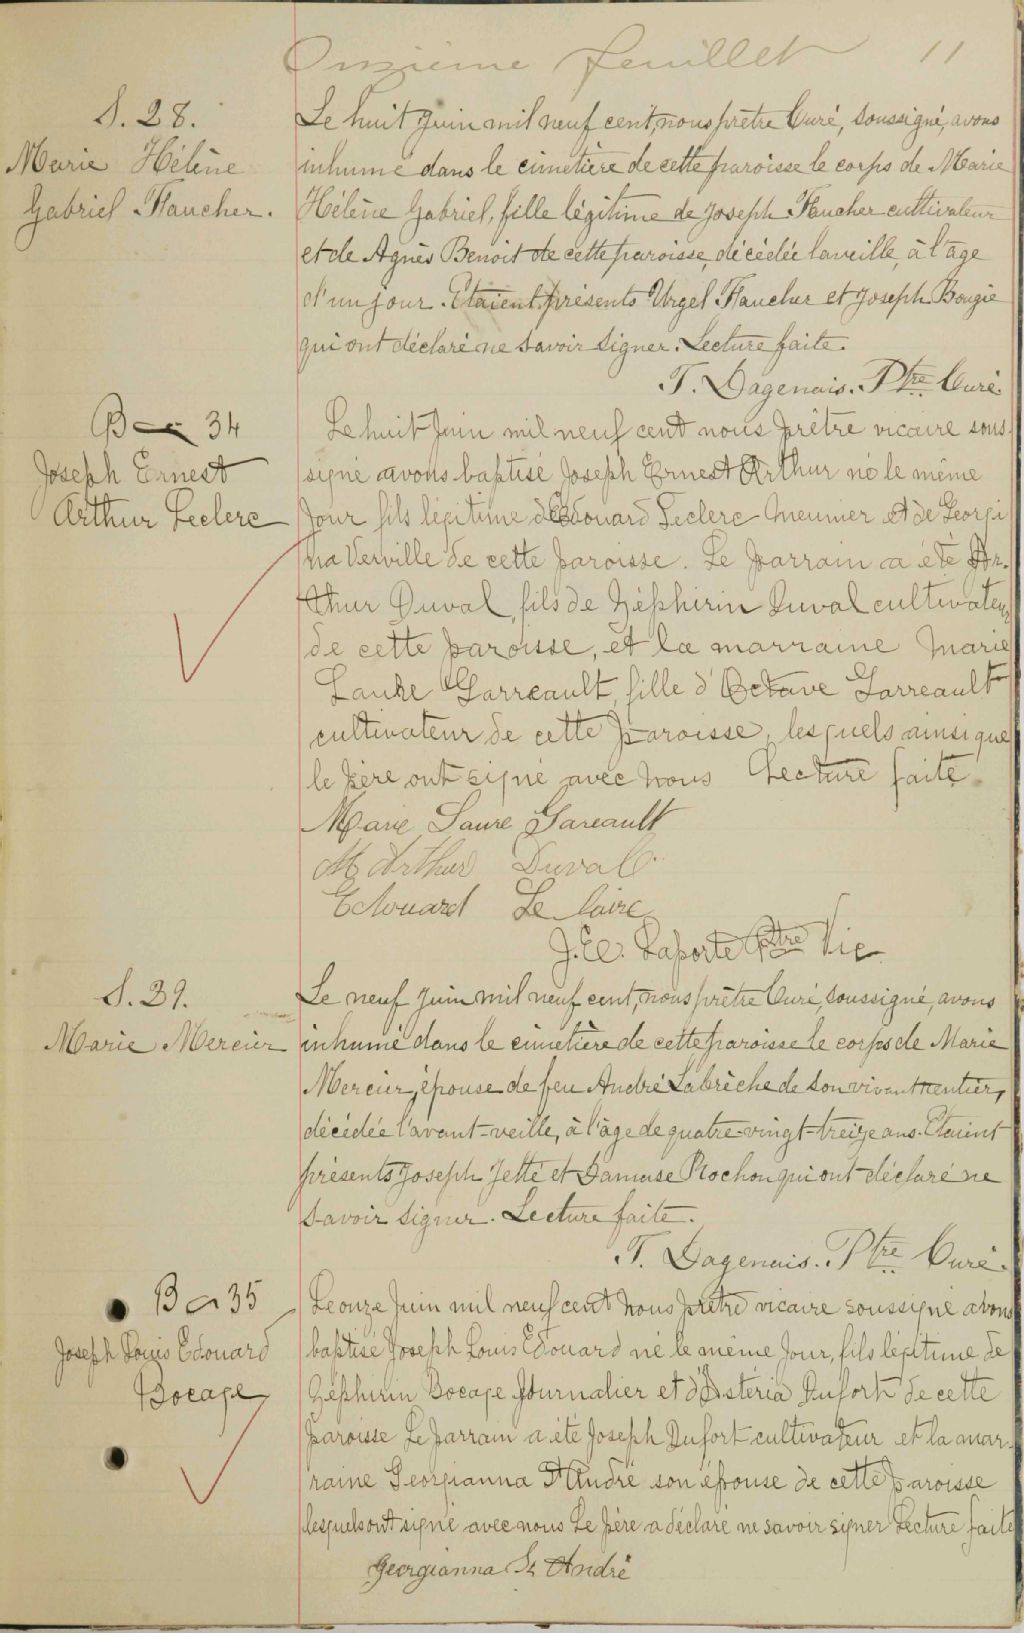 Onzième feuillet 11
S. 28.
Marie Hélène
Gabriel Faucher.
Le huit Juin mil neuf cent, nous prêtre Curé, soussigné, avons
inhumé dans le cimetière de cette paroisse le corps de Marie
Hélène Gabriel, fille légitime de Joseph Faucher cultivateur
et de Agnès Benoit de cette paroisse, décédée la veille, à l'âge
d'un jour. Etaient présents Urgel Faucher et Joseph Bougie
qui ont déclaré ne savoir signer. Lecture faite.
T. Dagenais. Ptre Curé.
B 34
Joseph Ernest
Arthur Leclerc
Le huit Juin mil neuf cent nous prêtre vicaire sous-
signé avons baptisé Joseph Ernest Arthur né le même
Jour fils légitime d'Edouard Leclerc Meunier et de Georgi
na Verville de cette paroisse. Le parrain a été Ar-
thur Duval, fils de Zéphirin Duval cultivateur
de cette paroisse, et la marraine Marie
Laure Garreault, fille d'Octave Garreault
cultivateur de cette paroisse, lesquels ainsi que
le père ont signé avec nous Lecture faite.
Marie Laure Gareault
M Arthur Duval
Edouard Le laire
J. Ed. Laporte Ptre Vic
S. 29.
Marie Mercier
Le neuf Juin mil neuf cent, nous prêtre Curé, soussigné, avons
inhumé dans le cimetière de cette paroisse le corps de Marie
Mercier, épouse de feu André Labrèche de son vivant rentier,
décédée l'avant-veille, à l'âge de quatre-vingt-treize ans. Etaient
présents Joseph Jetté et Damase Rochon qui ont déclaré ne
savoir signer. Lecture faite.
T. Dagenais. Ptre Curé.
B 35
Joseph Louis Edouard
Bocage
Le onze Juin mil neuf cent nous prêtre vicaire soussigné avons
baptisé Joseph Louis Edouard né le même Jour, fils légitime de
Zéphirin Bocage Journalier et d'Astéria Dufort de cette
paroisse Le parrain a été Joseph Dufort cultivateur et la mar-
raine Georgianna St André son épouse de cette paroisse
lesquels ont signé avec nous Le père a déclaré ne savoir signer Lecture faite
Georgianna St André